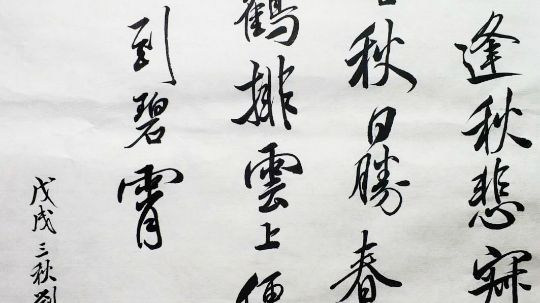 逢秋悲寂
秋日勝春
鶴排雲上便
到碧霄
戊戌三秋劉